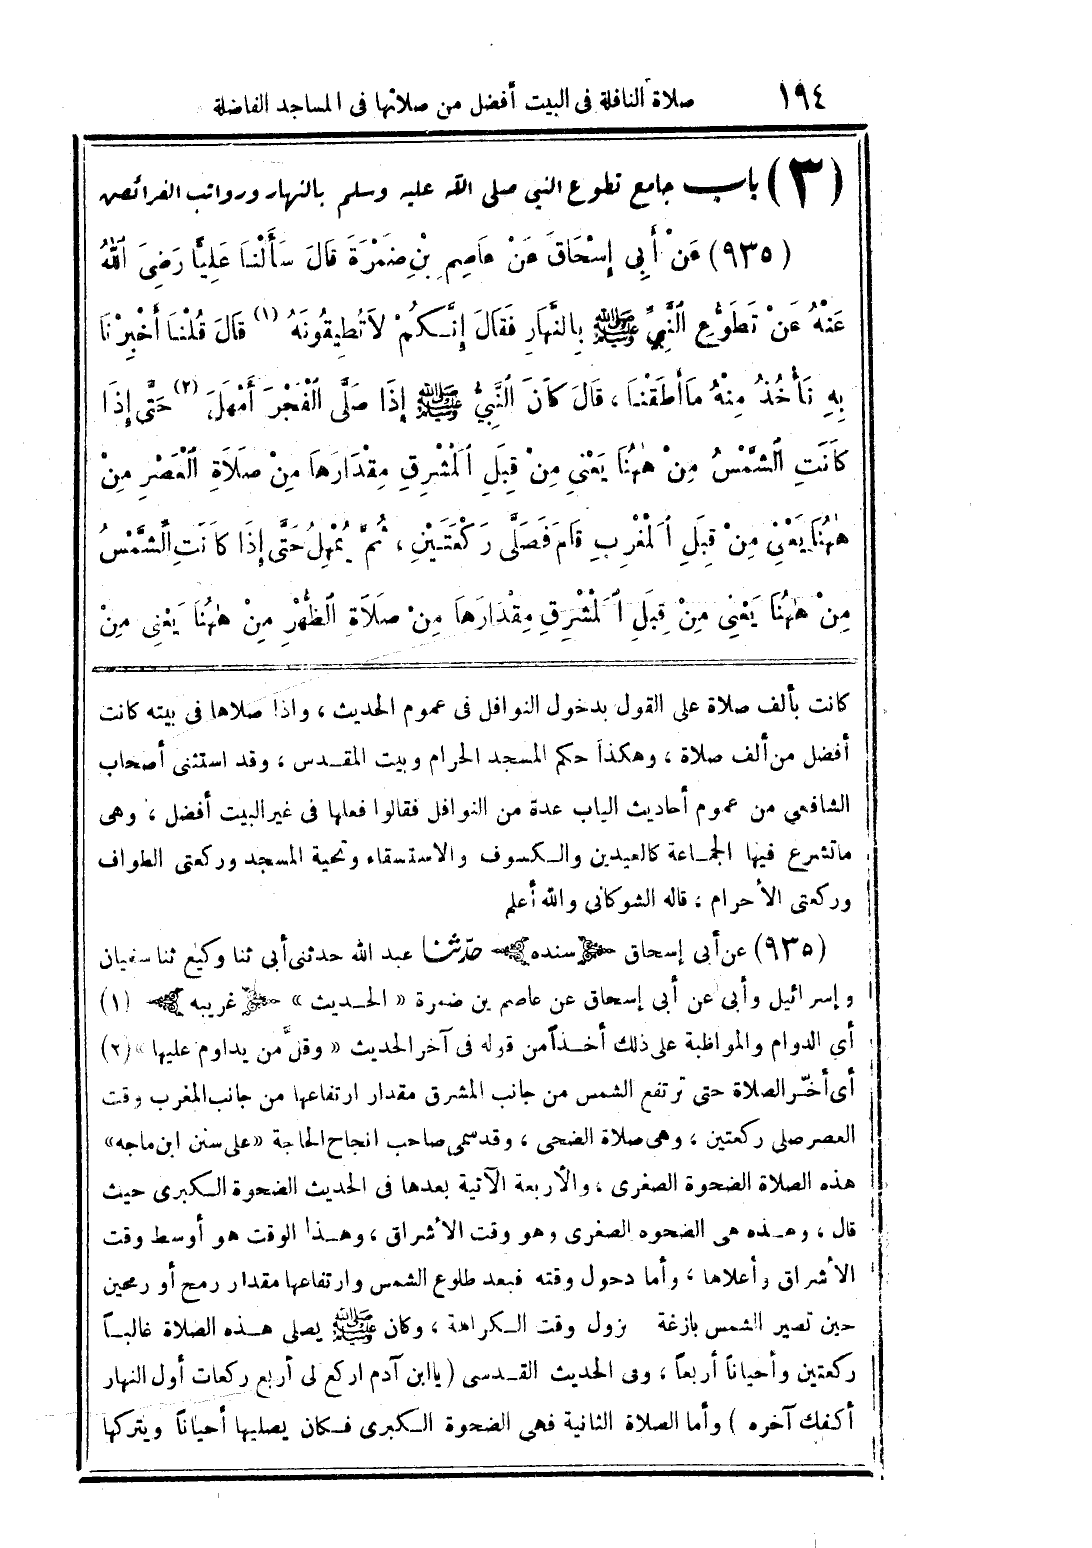 ١٩٤ صلاة النافلة فى البيت أفضل من صلاتها فى المساجد الفاضلة
(٣) باب جامع تطوع النبي صلى الله عليه وسلم بالنهار ورواتب الفرائض
(٩٣٥) عَنْ أَبِى إِسْحَاقَ عَنْ عَاصِمِ بْنِ ضَمْرَةَ قَالَ سَأَلْنَا عَلِيًّا رَضِىَ اللهُ
عَنْهُ عَنْ تَطَوُّعِ النَّبِيِّ ﷺ بِالنَّهَارِ فَقَالَ إِنَّكُمْ لاَتُطِيقُونَهُ (١) قَالَ قُلْنَا أَخْبِرْنَا
بِهِ نَأْخُذُ مِنْهُ مَاأَطَقْنَا ، قَالَ كَانَ النَّبِيُّ ﷺ إِذَا صَلَّى الْفَجْرَ أَمْهَلَ (٢) حَتَّى إِذَا
كَانَتِ الشَّمْسُ مِنْ هٰهُنَا يَعْنِي مِنْ قِبَلِ الْمَشْرِقِ مِقْدَارَهَا مِنْ صَلَاَةِ الْعَصْرِ مِنْ
هٰهُنَا يَعْنِي مِنْ قِبَلِ الْمَغْرِبِ قَامَ فَصَلَّى رَكْعَتَيْنِ ، ثُمَّ يُمْهِلُ حَتَّى إِذَا كَانَتِ الشَّمْسُ
مِنْ هٰهُنَا يَعْنِى مِنْ قِبَلِ الْمَشْرِقِ مِقْدَارَهَا مِنْ صَلَاَةِ الظُّهْرِ مِنْ هٰهُنَا يَعْنِى مِنْ
كانت بألف صلاة على القول بدخول النوافل فى عموم الحديث ، واذا صلاها فى بيته كانت
أفضل من ألف صلاة ، وهكذا حكم المسجد الحرام وبيت المقدس ، وقد استثنى أصحاب
الشافعي من عموم أحاديث الباب عدة من النوافل فقالوا فعلها فى غير البيت أفضل ، وهى
ماتشرع فيها الجماعة كالعيدين والكسوف والاستسقاء وتحية المسجد وركعتى الطواف
وركعتى الأحرام ، قاله الشوكانى والله أعلم
(٩٣٥) عن أبى إسحاق سنده حدّثنا عبد الله حدثنى أبى ثنا وكيع ثنا سفيان
وإسرائيل وأبى عن أبى إسحاق عن عاصم بن ضمرة « الحديث » غريبه (١)
أي الدوام والمواظبة على ذلك أخذاً من قوله فى آخر الحديث « وقلَّ من يداوم عليها » (٢)
أى أخّر الصلاة حتى ترتفع الشمس من جانب المشرق مقدار ارتفاعها من جانب المغرب وقت
العصر صلى ركعتين ، وهى صلاة الضحى ، وقد سمى صاحب انجاح الحاجة «على سنن ابن ماجه»
هذه الصلاة الضحوة الصغرى ، والأربعة الآتية بعدها فى الحديث الضحوة الكبرى حيث
قال ، وهذه هى الضحوه الصغرى وهو وقت الأشراق ، وهذا الوقت هو أوسط وقت
الأشراق وأعلاها ، وأما دخول وقته فبعد طلوع الشمس وارتفاعها مقدار رمح أو رمحين
حين تصير الشمس بازغة يزول وقت الكراهة ، وكان ﷺ يصلى هذه الصلاة غالباً
ركعتين وأحياناً أربعاً ، وفى الحديث القدسى (ياابن آدم اركع لى أربع ركعات أول النهار
أكفك آخره ) وأما الصلاة الثانية فهى الضحوة الكبرى فكان يصليها أحياناً ويتركها